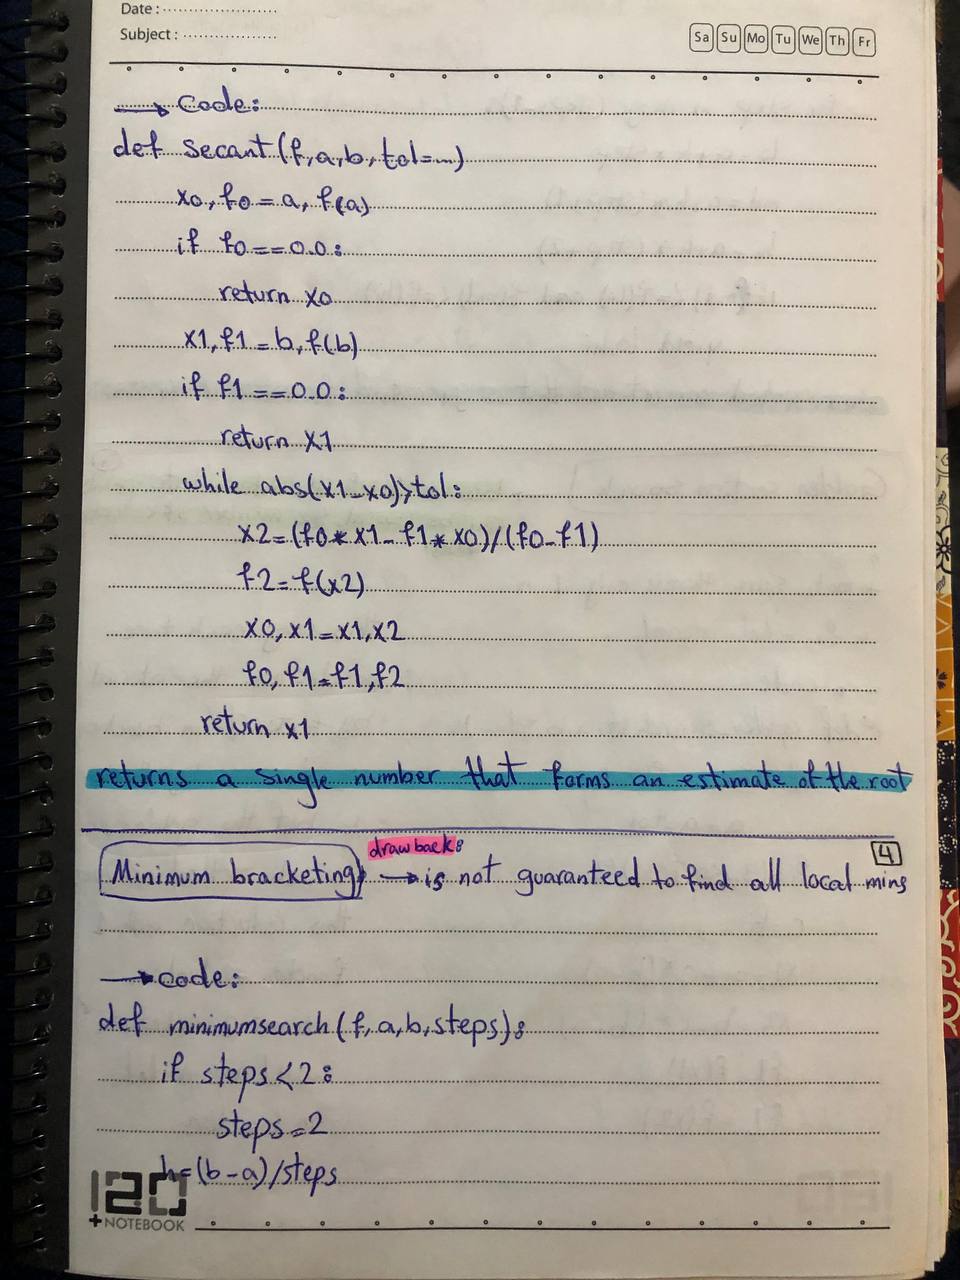 Date :
Subject :
Sa Su Mo Tu We Th Fr
→ Code:
def secant(f,a,b,tol=...)
x0,f0=a,f(a)
if f0==0.0:
return x0
x1,f1=b,f(b)
if f1==0.0:
return x1
while abs(x1-x0)>tol:
x2=(f0*x1-f1*x0)/(f0-f1)
f2=f(x2)
x0,x1=x1,x2
f0,f1=f1,f2
return x1
returns a single number that forms an estimate of the root
drawback:
4
Minimum bracketing → is not guaranteed to find all local mins
→ code:
def minimumsearch(f,a,b,steps):
if steps<2:
steps=2
h=(b-a)/steps
120
+NOTEBOOK